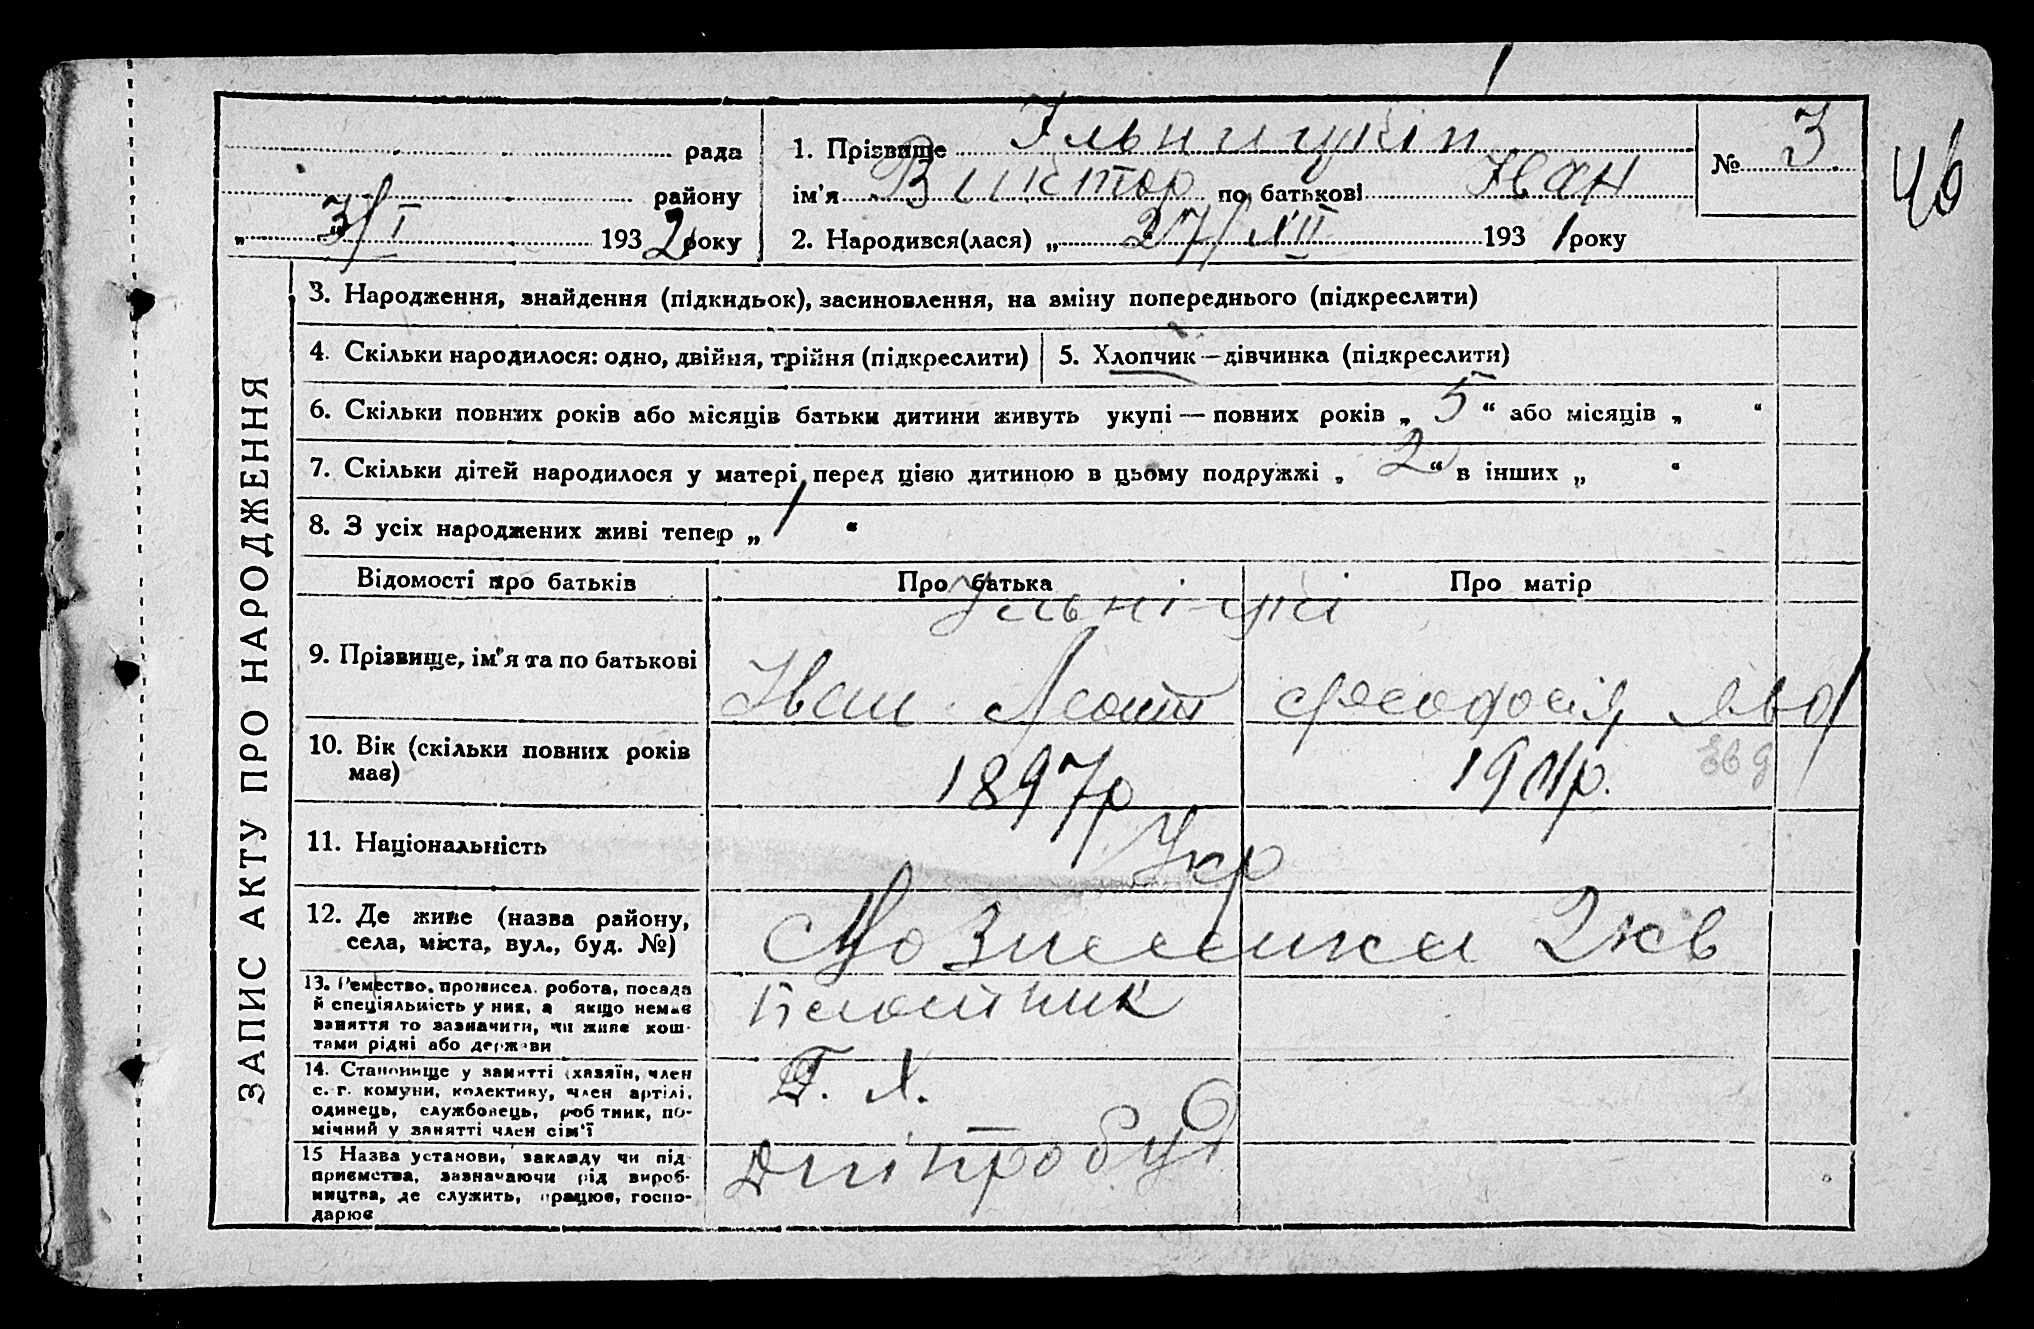 рада
району
„ 3/I 1932 року
1. Прізвище
ім'я Виктор по батькові Иван
2. Народився(лася) „ 27/XII 1931 року
№ 3
46
ЗАПИС АКТУ ПРО НАРОДЖЕННЯ
3. Народження, знайдення (підкидьок), засиновлення, на зміну попереднього (підкреслити)
4. Скільки народилося: одно, двійня, трійня (підкреслити)
5. Хлопчик — дівчинка (підкреслити)
6. Скільки повних років або місяців батьки дитини живуть укупі — повних років „ 5 “ або місяців „ “
7. Скільки дітей народилося у матері перед цією дитиною в цьому подружжі „ 2 “ в інших „ “
8. З усіх народжених живі тепер „ 1 “
Відомості про батьків
Про батька
Про матір
9. Прізвище, ім'я та по батькові
Иван Леонт
Феодосія Явд
Евд
10. Вік (скільки повних років
має)
1897р
11. Національність
Укр
12. Де живе (назва району,
села, міста, вул., буд. №)
2кв
13. Ремество, промисел, робота, посада
й спеціяльність у них, а якщо немає
заняття то зазначити, чи живе кош-
тами рідні або держави
14. Становище у занятті (хазяїн, член
с.-г. комуни, колективу, член артілі,
одинець, службовець, робітник, по-
мічний у занятті член сім'ї
15 Назва установи, закладу чи під-
приємства, зазначаючи рід вироб-
ництва, де служить, працює, госпо-
дарює
Дніпробуд